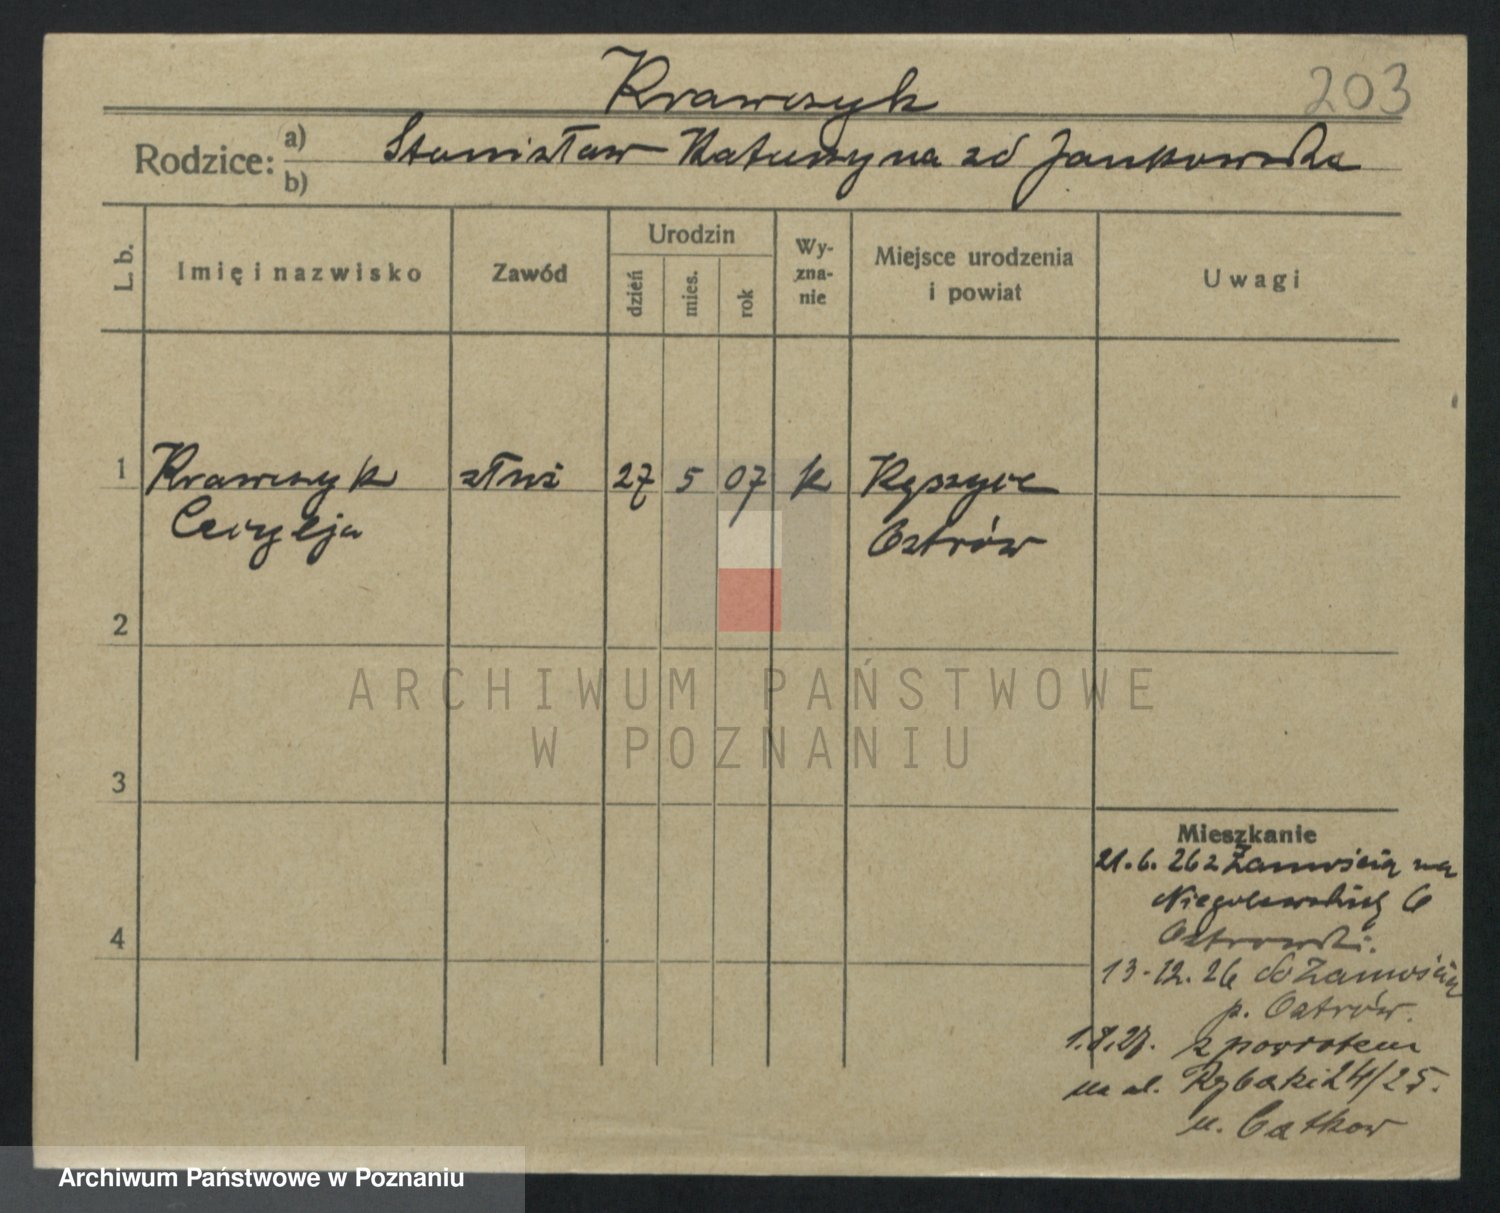 Krawczyk
203
Rodzice: a) Stanisław Katarzyna zd Jankowska
b)
L. b.
Imię i nazwisko
Zawód
Urodzin
dzień
mies.
rok
Wy-
zna-
nie
Miejsce urodzenia
i powiat
Uwagi
1 Krawczyk służ 27 5 07 k
Cecylja Ostrów
2
3
4
Mieszkanie
21.6.26 z Zamościa na
Niegolewskich 6
13.12.26 do Zamościa
p. Ostrów.
z powrotem
na ul. Rybaki 24/25.
u.
ARCHIWUM PAŃSTWOWE
W POZNANIU
Archiwum Państwowe w Poznaniu